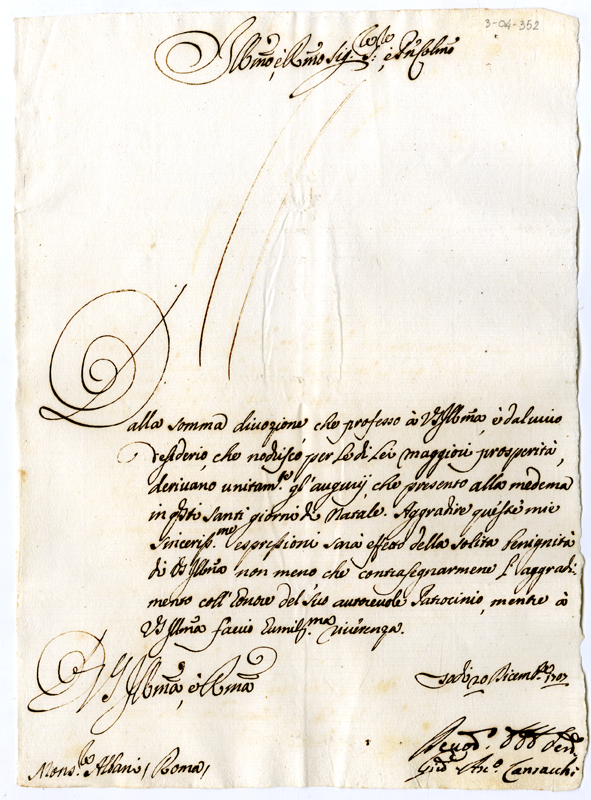 3-04-352
Illmo, è Rmo Sig.r è Pron Colmo
Dalla somma divozione che professo à VS Illma, è dal vivo
desiderio, che nodrisco per le di Lei maggiori prosperità,
derivano unitam.te gl'augurij, che presento alla medema
in qsti santi giorni di Natale. Aggradire queste mie
sinceriss.me espressioni sarà effetto della solita benignità
di VS Illma non meno che contrasegnarmene l'aggradi-
mento coll'honore del suo autorevole Patrocinio, mentre à
VS Illma faccio humiliss.ma riverenza.
DVS Illma, è Rma
20 Dicemb.re 1707
Mons.re Albani, Roma,
Cansacchi